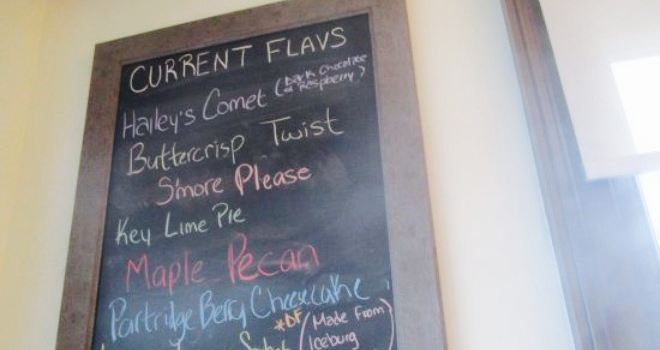 CURRENT FLAVS
Hailey's Comet (Dark Chocolate & Raspberry)
Buttercrisp Twist
S'more Please
Key Lime Pie
Maple Pecan
Partridge Berry Cheesecake
*DF (Made From Iceburg